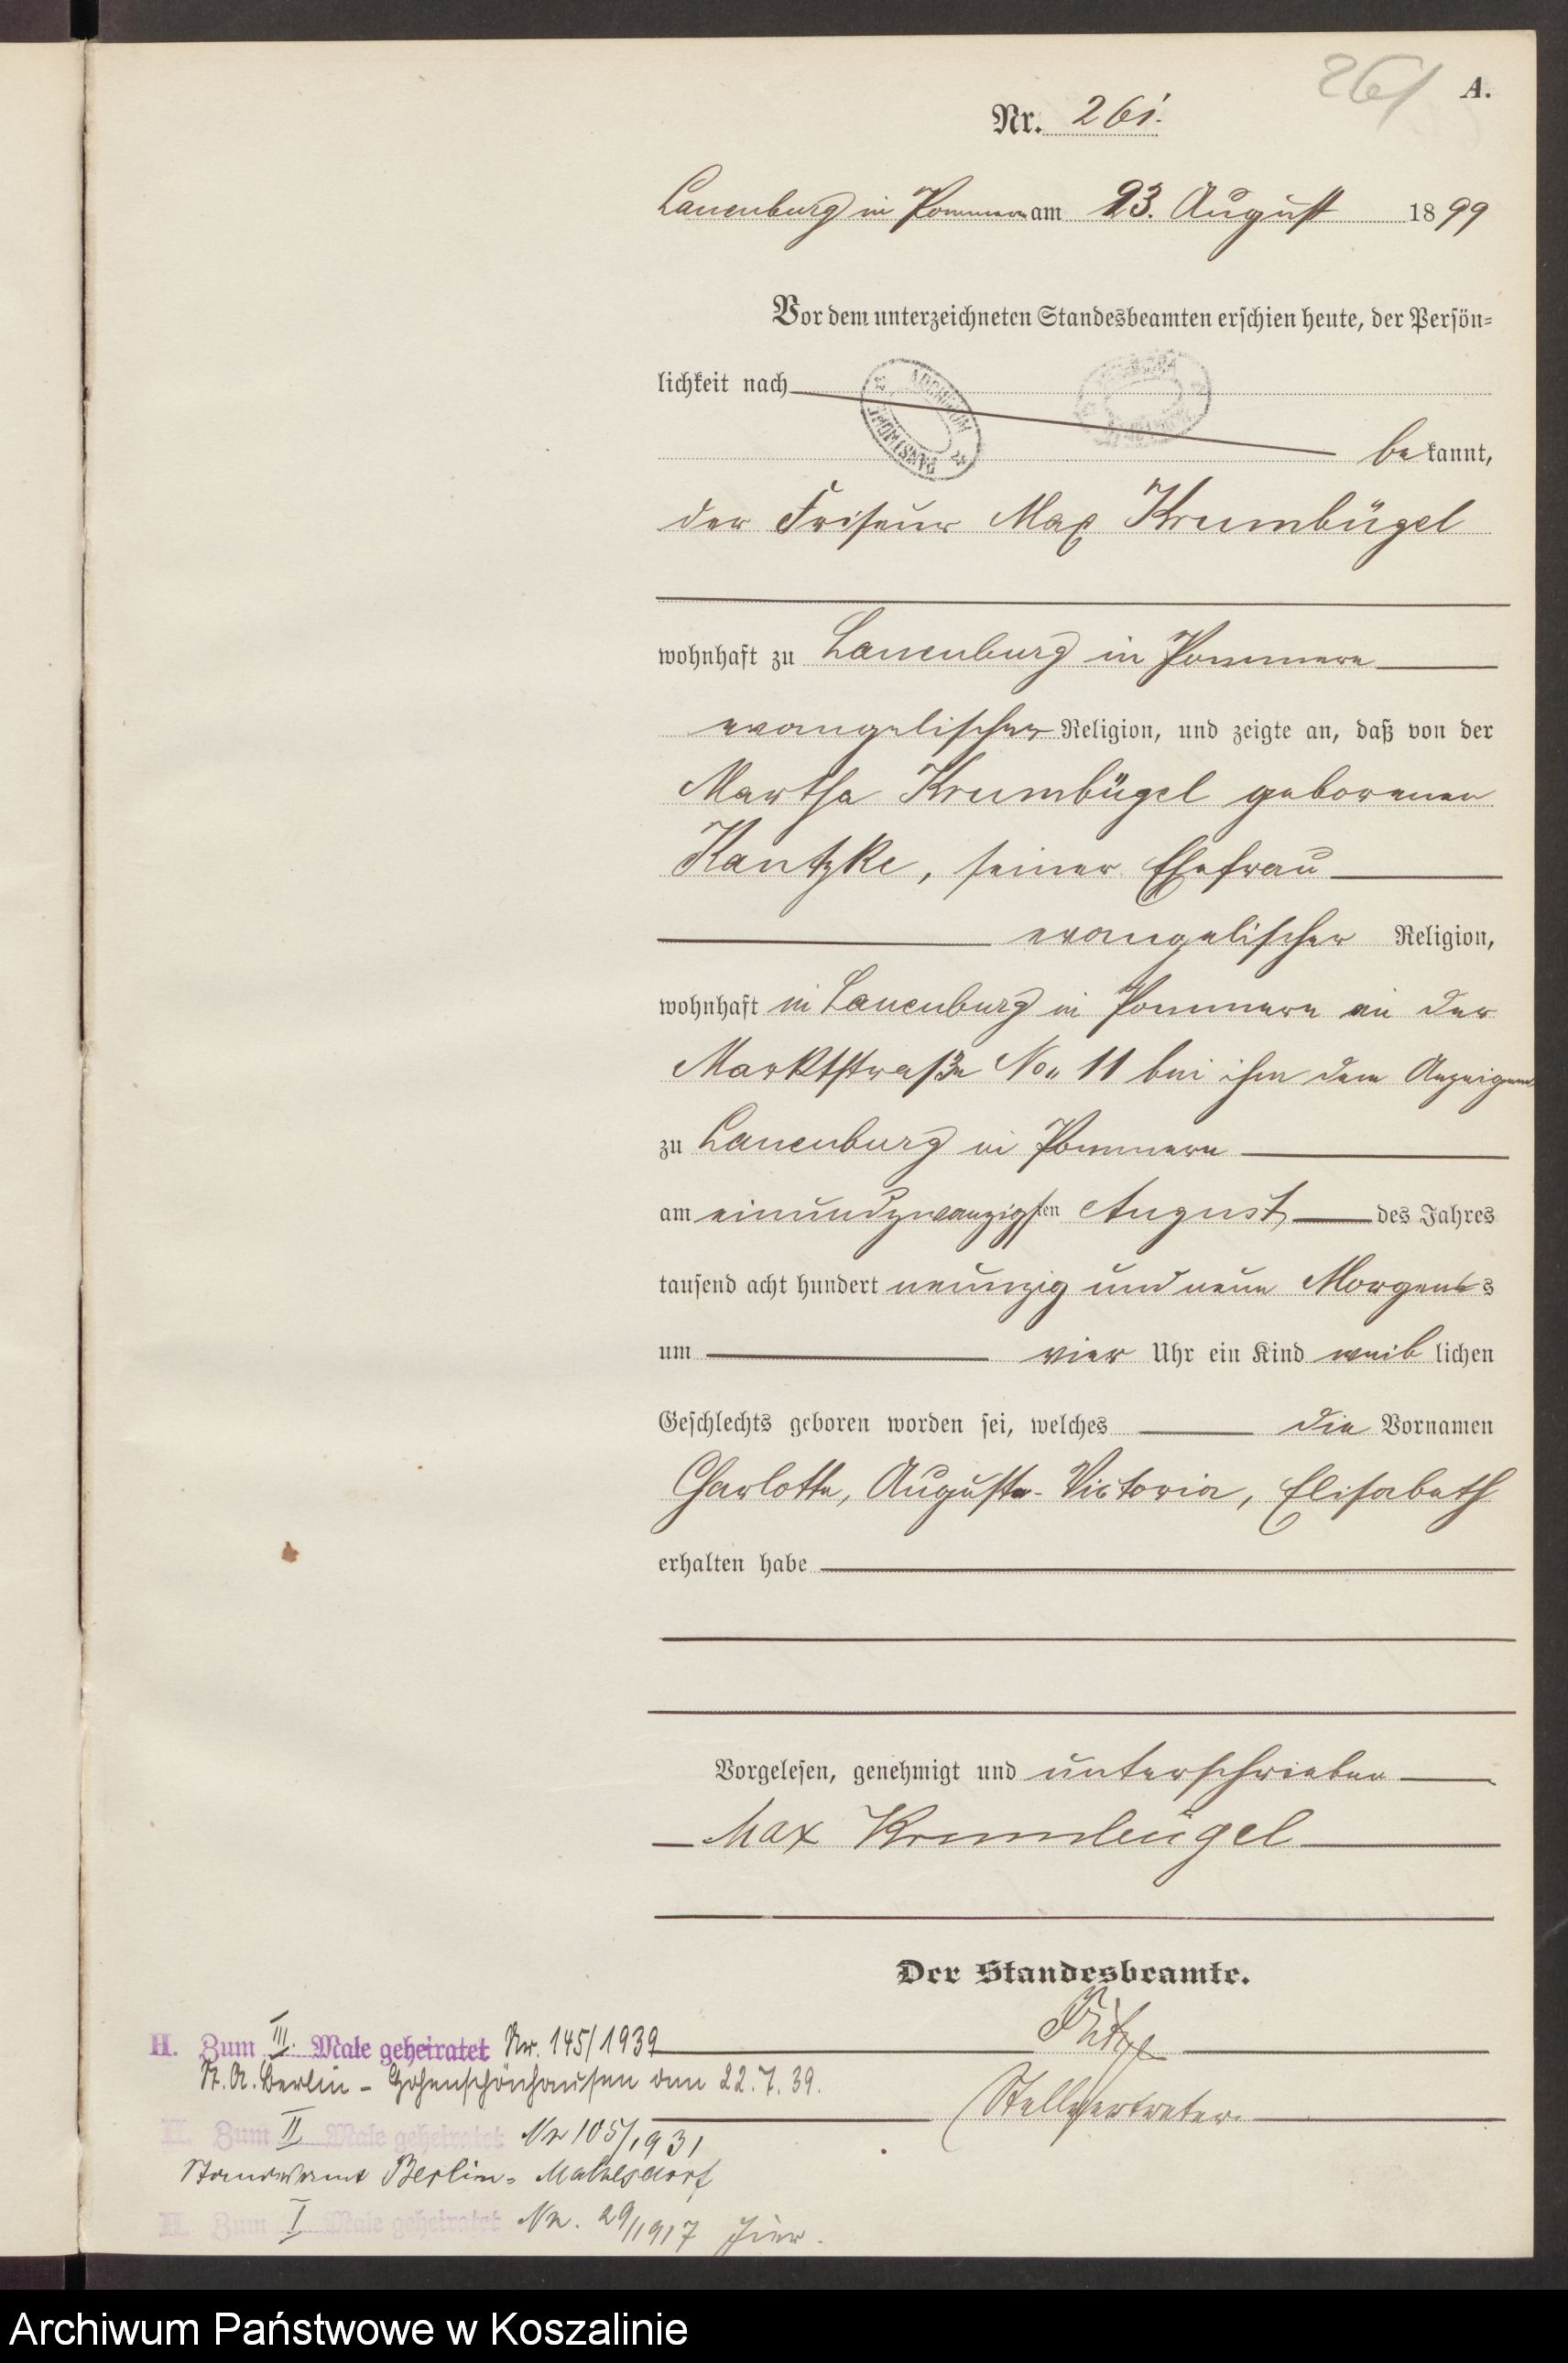 261 A.
Nr. 261.
Lauenburg in Pommern am 23. August 1899
Vor dem unterzeichneten Standesbeamten erschien heute, der Persön-
lichkeit nach
bekannt,
der Friseur Max Krumbügel
wohnhaft zu Lauenburg in Pommern
evangelischer Religion, und zeigte an, daß von der
Martha Krumbügel geborenen
Kantzke, seiner Ehefrau
evangelischer Religion,
wohnhaft in Lauenburg in Pommern an der
Marktstraße No. 11 bei ihm dem Anzeigenden
zu Lauenburg in Pommern
am einundzwanzigsten August des Jahres
tausend acht hundert neunzig und neun Morgens
um vier Uhr ein Kind weiblichen
Geschlechts geboren worden sei, welches die Vornamen
Charlotte, Auguste-Victoria, Elisabeth
erhalten habe
Vorgelesen, genehmigt und unterschrieben
Max Krumbügel
Der Standesbeamte.
Stellvertreter.
H. Zum III. Male geheiratet Nr. 145/1939
St. A. Berlin - Hohenschönhausen am 22.7.39.
H. Zum II Male geheiratet Nr 105/1931
Standesamt Berlin-Mahlsdorf
H. Zum I Male geheiratet Nr. 29/1917 hier.
Archiwum Państwowe w Koszalinie